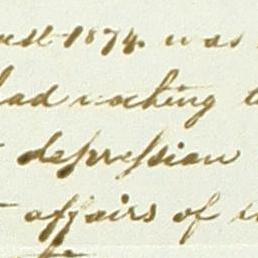 1874. was
had nothing
depression
affairs of